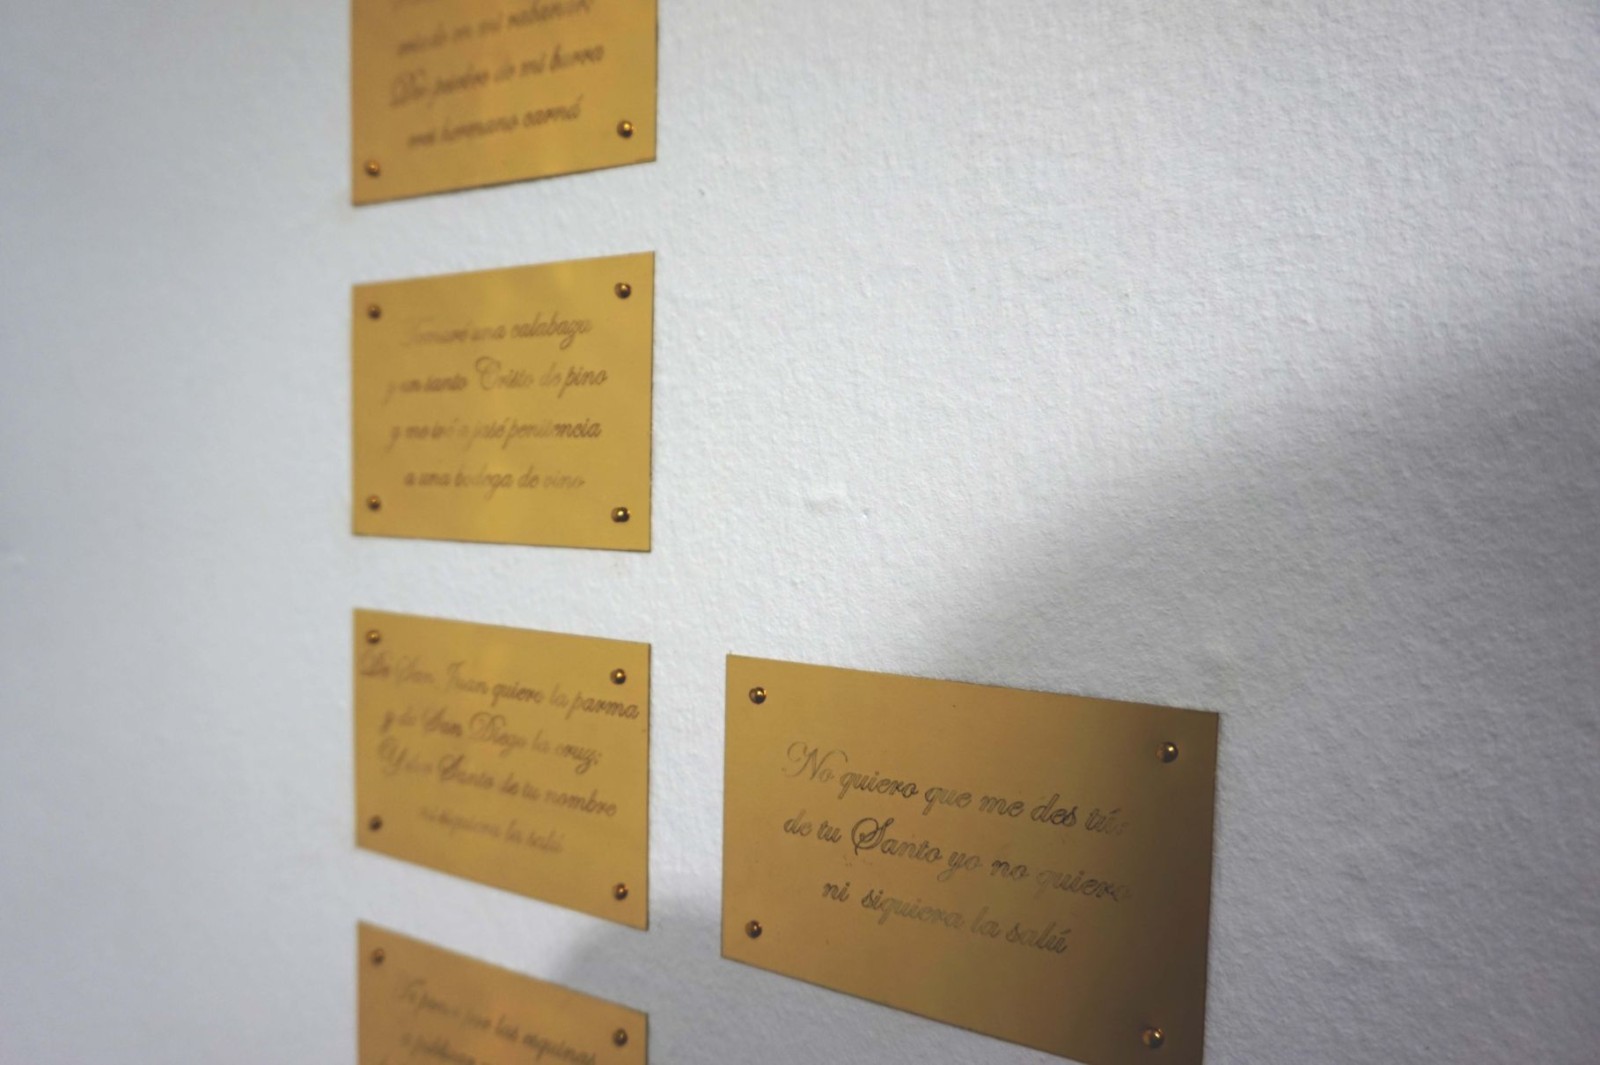 mi hermano carná
una calabazu
y un santo Cristo de pino
y me iré a jasé penitencia
a una bodega de vino
De San Juan quiero la parma
y de San Diego la cruz;
Santo de tu nombre
ni siquiera la salú
No quiero que me des tú
de tu Santo yo no quiero
ni siquiera la salú
por las esquinas